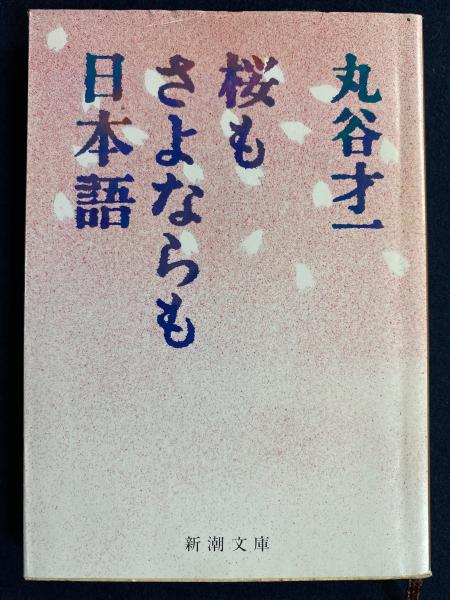 丸谷才一
桜も
さよならも
日本語
新潮文庫